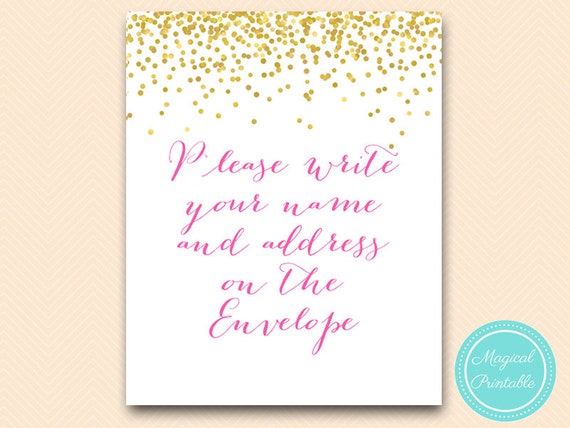 Please write
your name
and address
on the
Envelope
Magical
Printable